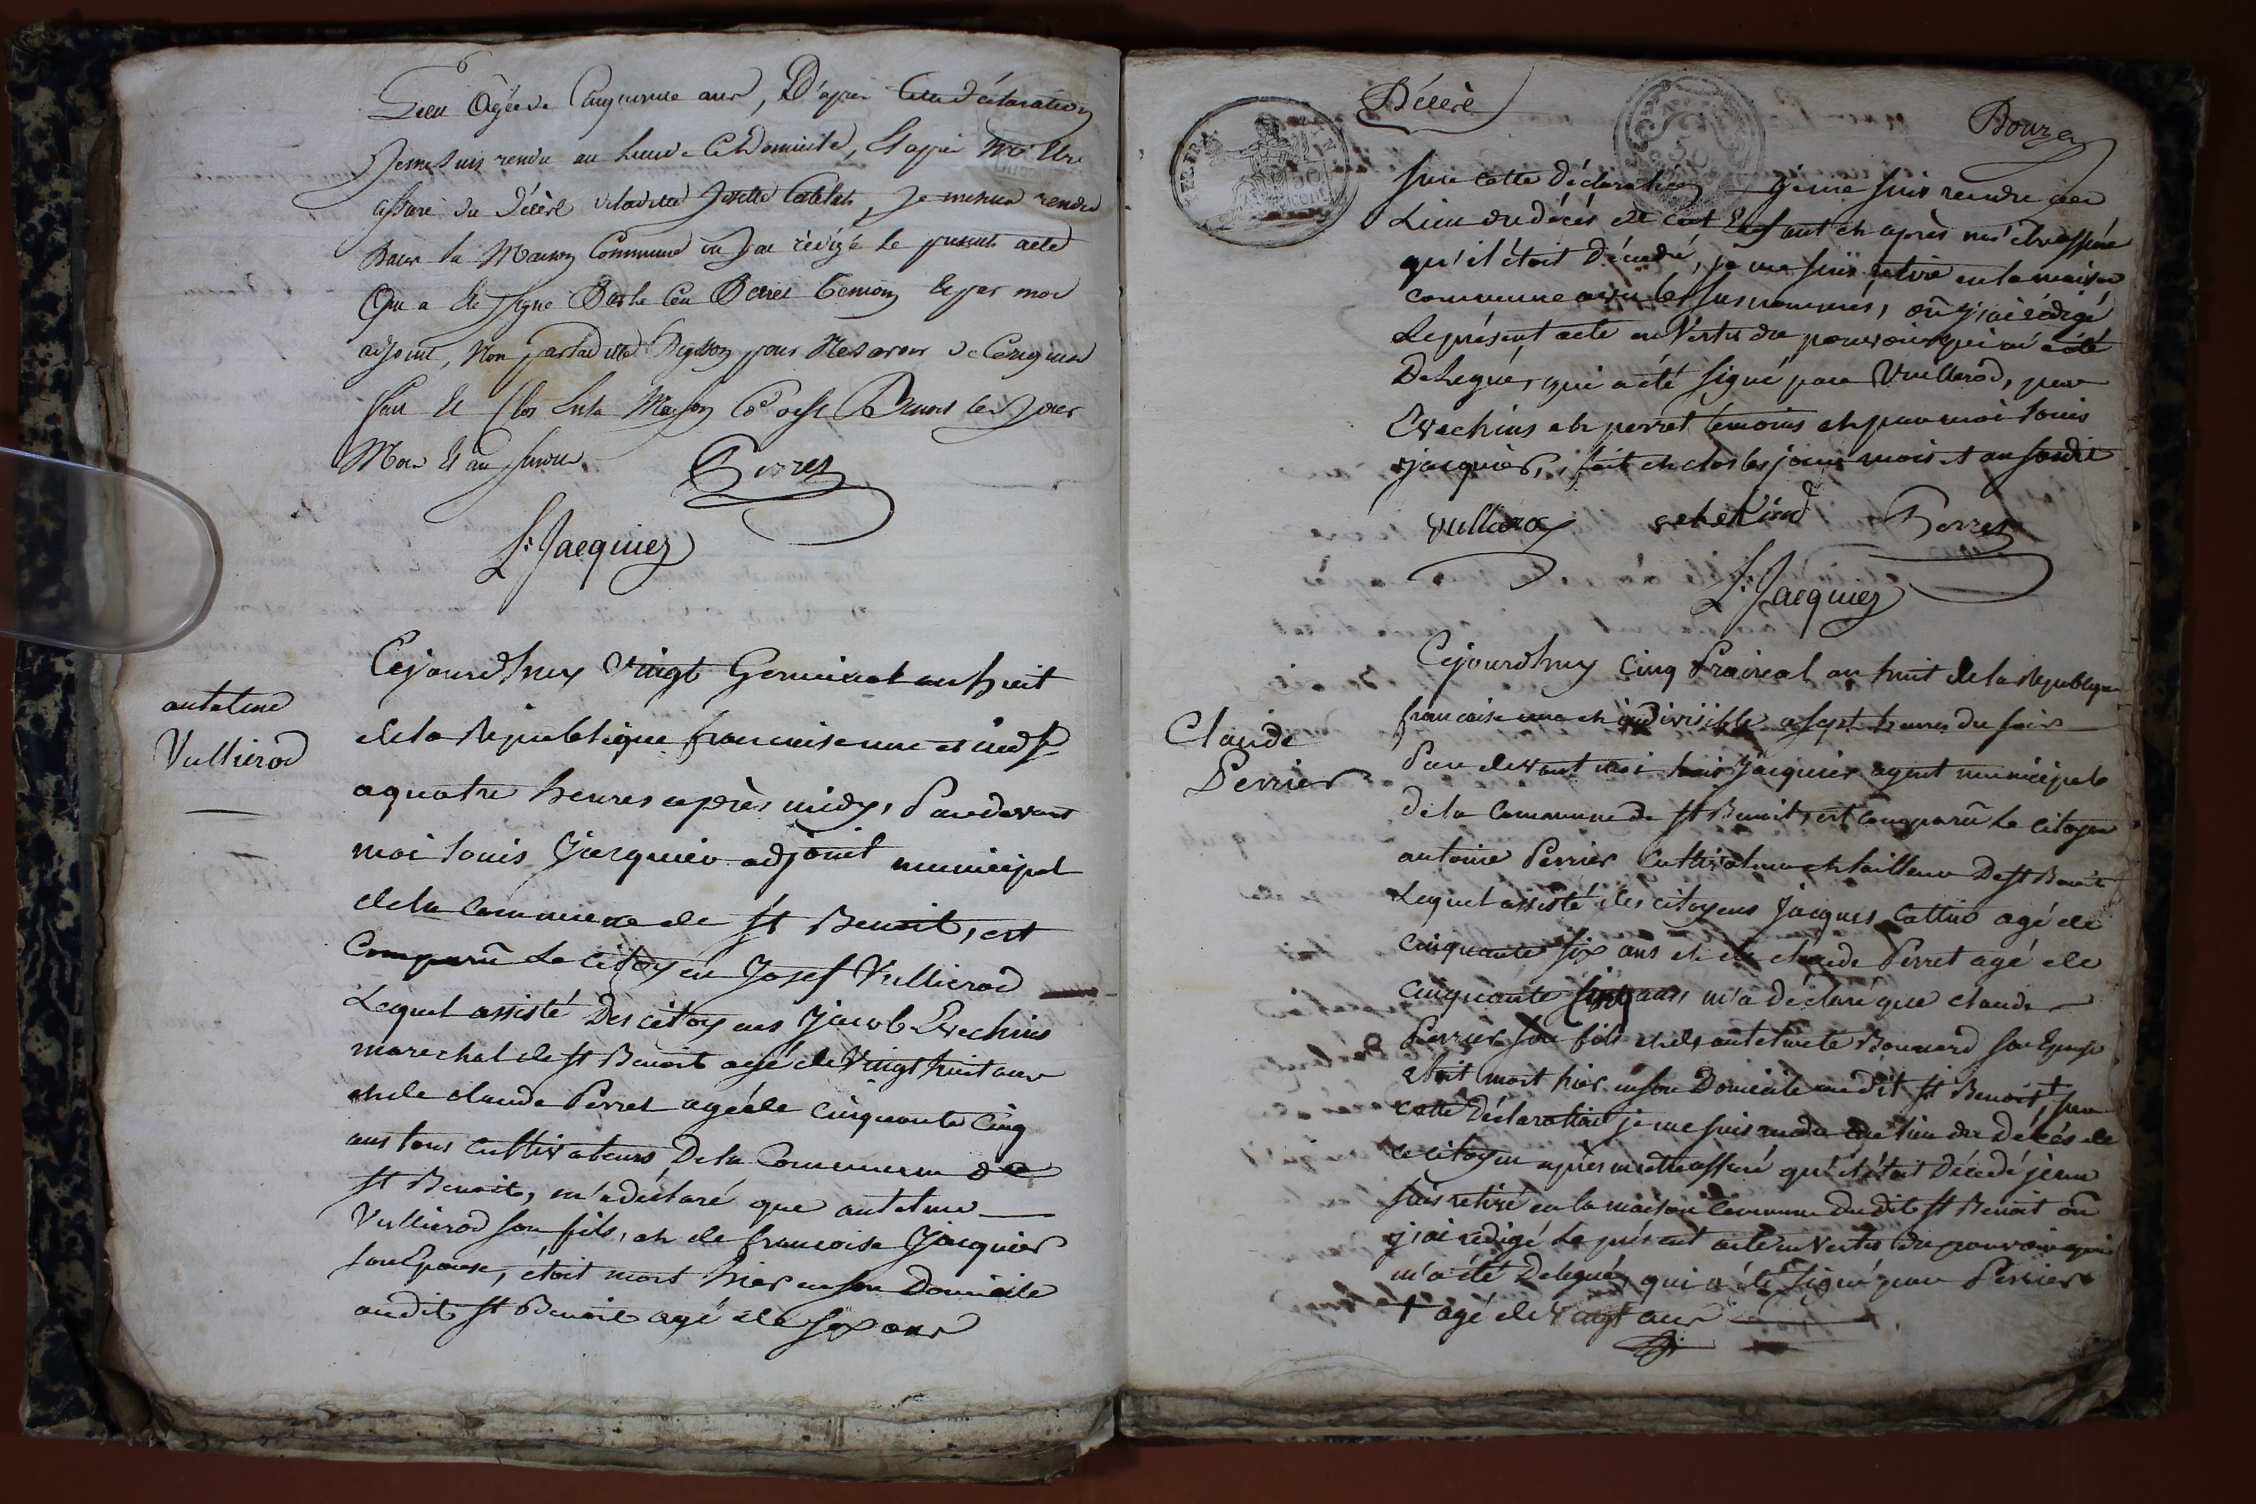 Lieu Agée de Cinquante ans, D'apres Cette déclaration
Je me suis rendu au Lieu de Ce domicile, Et apres m'être
assuré du Décès de ladite Josette je me suis rendu
Dans la Maison Commune où J'ai rédigé le present acte
Qui a été signé Par le Cen Perret témoin Et par moi
adjoint, Non par ladite pour Ne savoir de Ce requise
fait Et Clos En la Maison Benoit les Jour
Mois Et an susdits
Perret
Ls Jacquier
antelme
Vullierod
Cejourdhuy Vingt Germinal an huit
de la Republique francaise une et indle
a quatre heures après midy, Pardevant
moi Louis Jacquier adjoint municipal
de la Commune de St Benoit, est
Comparû Le citoyen Josef Vullierod
Lequel assisté Des citoyens Jacob Evechins
marechal de St Benoit agé de Vingt huit ans
et de claude Perret agé de cinquante Cinq
ans tous cultivateurs De la Commune de
St Benoit, m'a déclaré que antelme
Vullierod son fils, et de francoise Jacquier
son Epouse, étoit mort hier en son Domicile
audit St Benoit agé de six ans
Décès
Bouze
sur cette déclaration je me suis rendu au
Lieu du décés de cet Enfant et après m'être assuré
qu'il étoit Décedé, je me suis retiré en la maison
commune avec les susnommés, où j'ai rédigé
Le présent acte en Vertu du pouvoir qui m'a été
Delegué, qui a été signé par Vullierod, par
Evechins et perret témoins et par moi Louis
Jacquier, fait et clos les jour mois et an susdit
Vullierod
Perret
Ls Jacquier
Claude
Perrier
Cejourdhuy Cinq Prairial an huit de la Republique
francaise une et indivisible a sept heures du soir
Par devant moi Louis Jacquier agent municipal
de la Commune de St Benoit, est comparû Le citoyen
antoine Perrier Cultivateur et tailleur De St Benoit
Lequel assisté des citoyens Jacques Cattin agé de
cinquante six ans et de claude Perret agé de
cinquante cinq ans, m'a déclaré que claude
Perrier son fils et de antelmete Bonnard son Epouse
etoit mort hier en son Domicile audit St Benoit + sur
cette Déclaration je me suis rendu au Lieu du Decés de
ce citoyen après m'etre assuré qu'il étoit Décedé je me
suis retiré en la maison Commune Dudit St Benoit où
j'ai redigé Le présent acte en Vertu du pouvoir qui
m'a été Delegué, qui a été signé par Perrier
+ agé de vingt ans